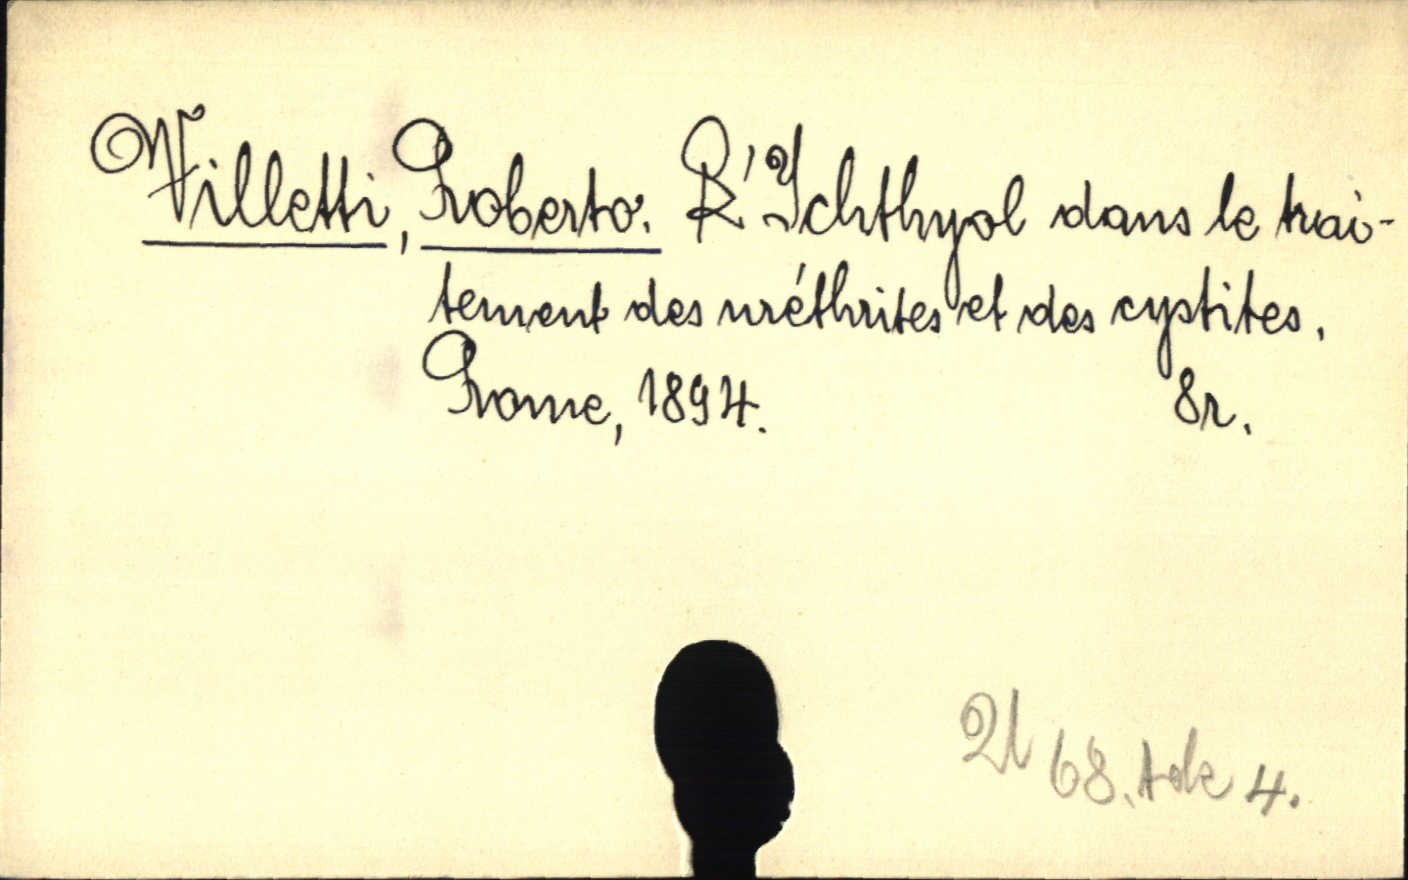 Villetti, Roberto. L'Ichthyol dans le trai-
tement des uréthrites et des cystites.
Rome, 1894. 8r.
68. 4.